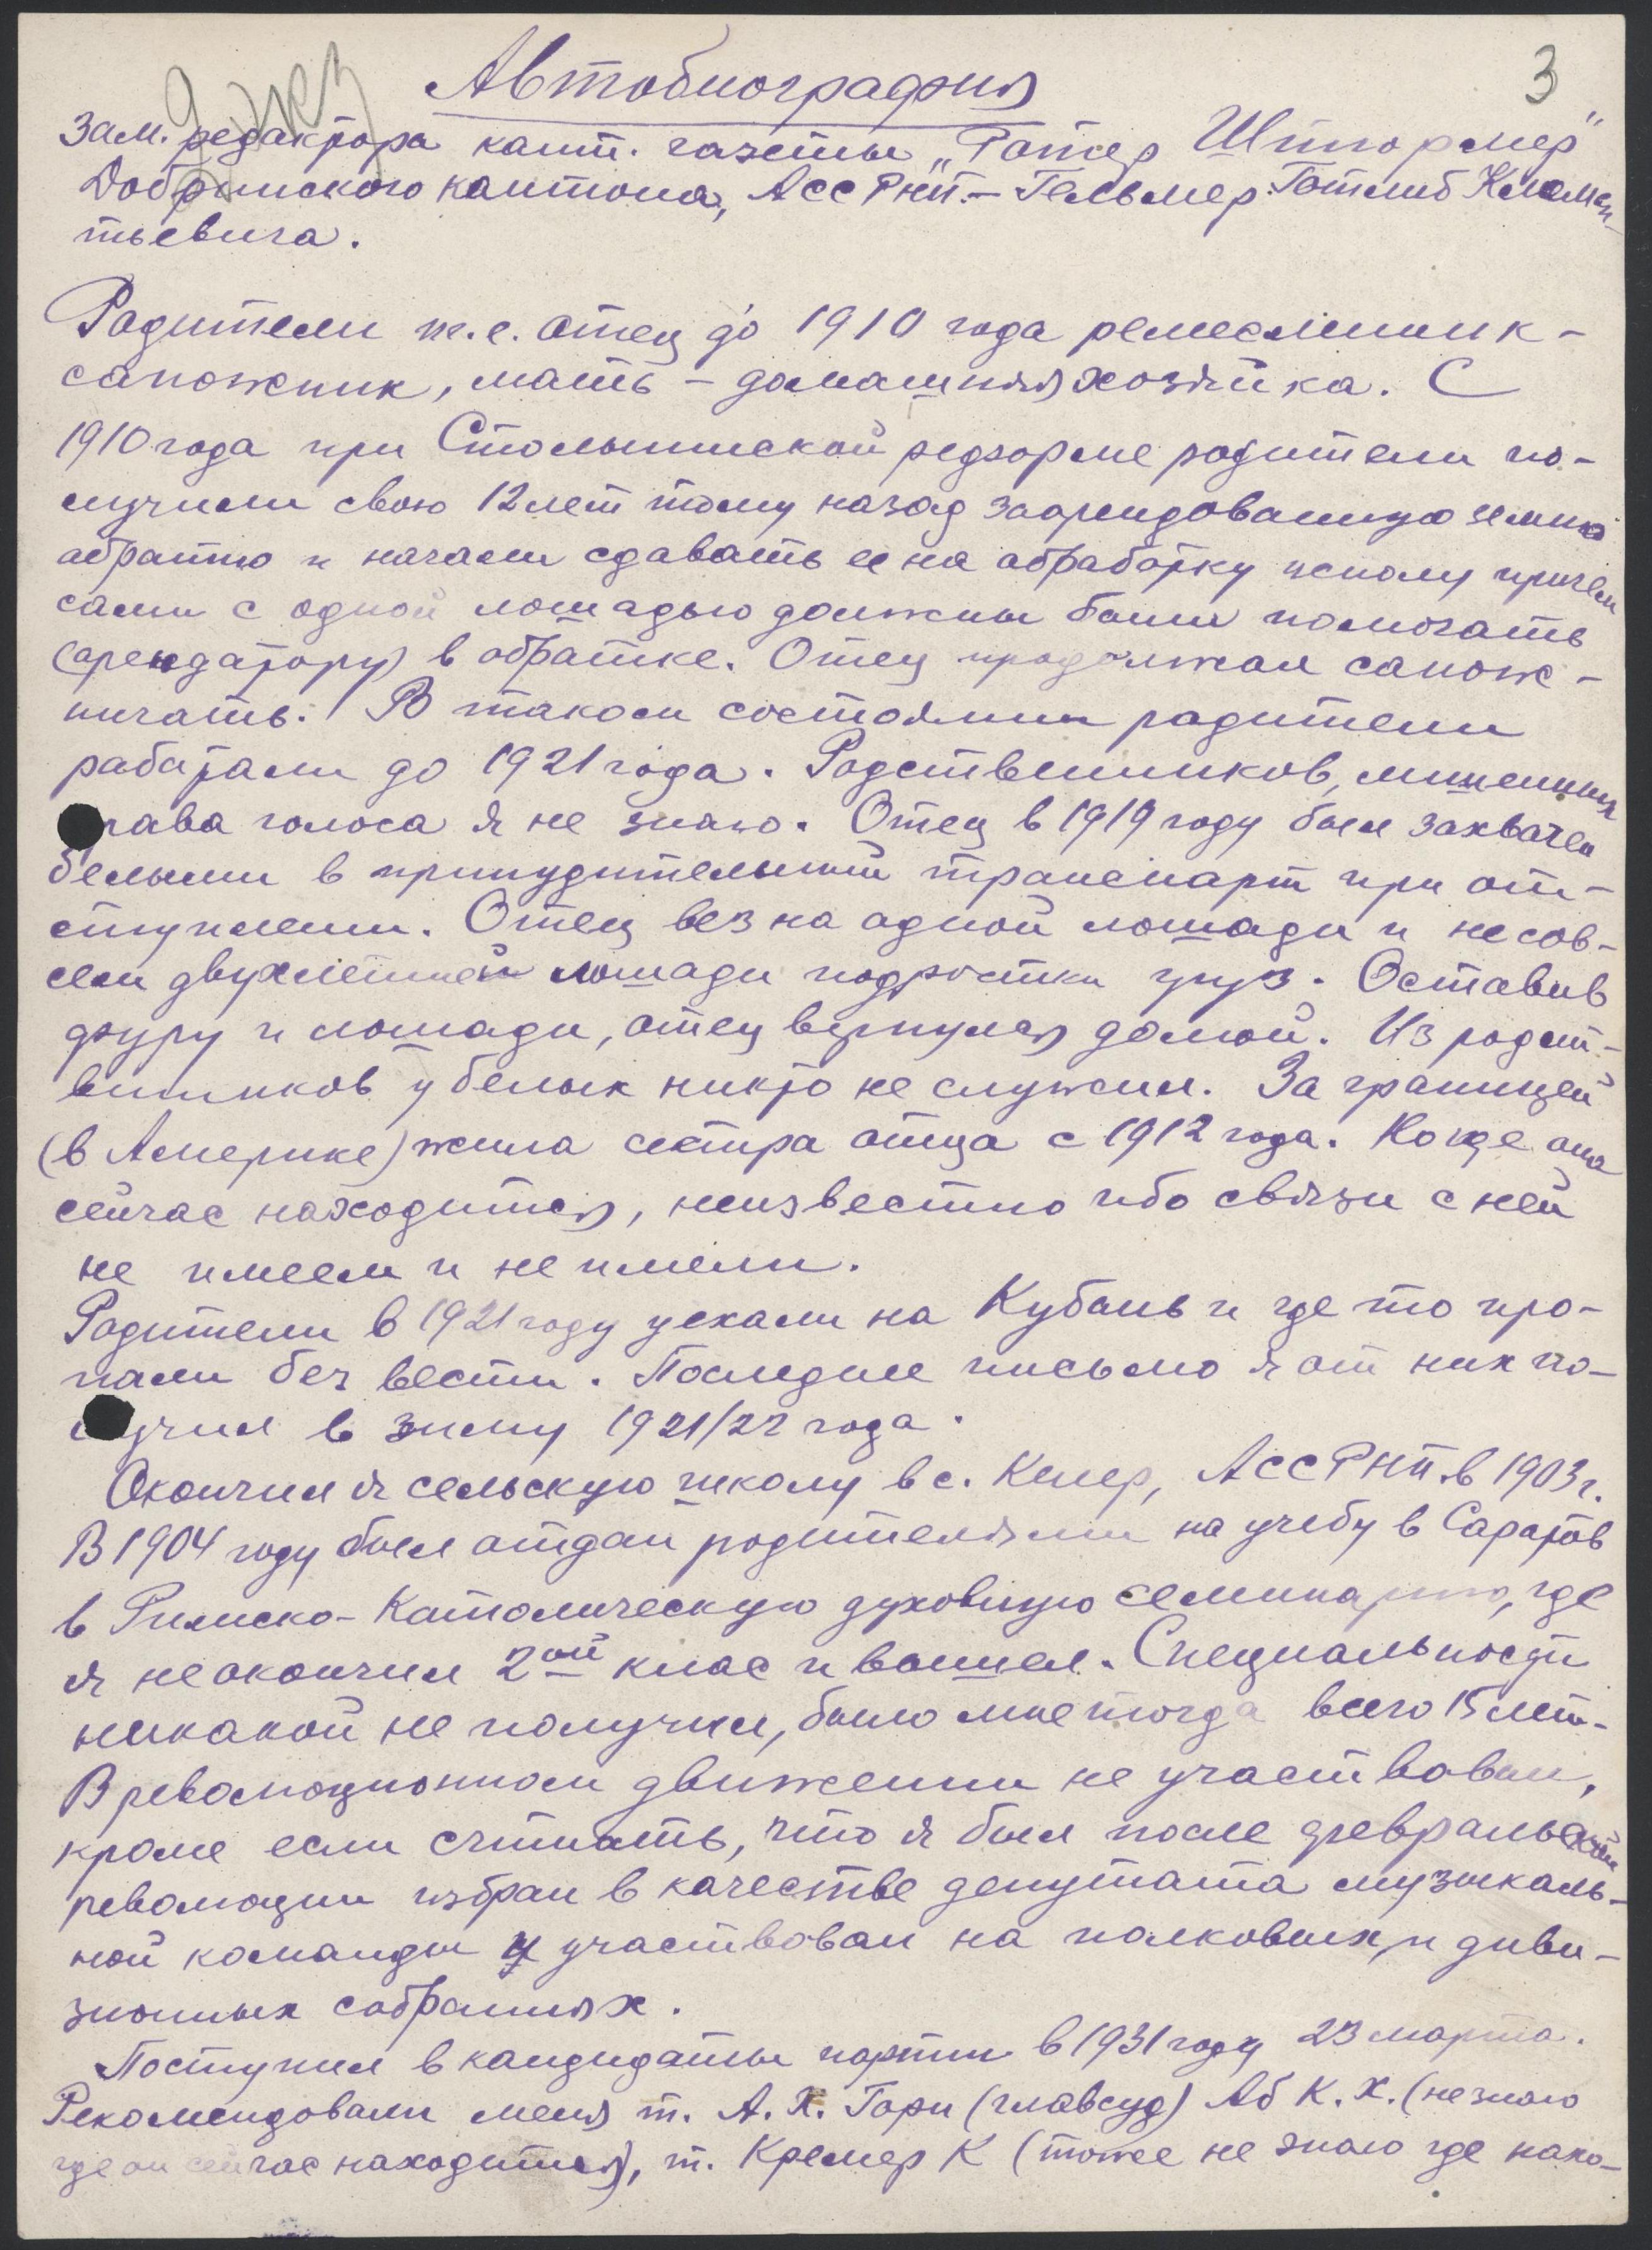 Автобиография
3
зам. редактора кант. газеты „Ротер Штюрмер"
Добринского кантона, АССРНП. – Гельмер Готлиб Клемен-
тьевича.
Родители т.е. отец до 1910 года ремесленник-
сапожник, мать – домашняя хозяйка. С
1910 года при Столыпинской редформе родители по-
лучили свою 12 лет тому назад заарендованную землю
обратно и начали сдавать ее на обработку исполу причем
сами с одной лошадью должны были помогать
(арендатору) в обратке. Отец продолжал сапож-
ничать. В таком состоянии родители
работали до 1921 года. Родственников, лишенных
права голоса я не знаю. Отец в 1919 году был захвачен
белыми в принудительный транспарт при от-
ступлении. Отец вез на одной лошади и не сов-
сем двухлетней лошади подростки груз. Оставив
фуру и лошади, отец вернулся домой. Из родст-
венников у белых никто не служил. За границей
(в Америке) жила сестра отца с 1912 года. Но где она
сейчас находится, неизвестно ибо связи с ней
не имеем и не имели.
Родители в 1921 году уехали на Кубань и где то про-
пали без вести. Последнее письмо я от них по-
лучил в зиму 1921/22 года.
Окончил я сельскую школу в с. Келер, АССРНП. в 1903 г.
В 1904 году был отдан родителями на учебу в Саратов
в Римско-Католическую духовную семинарию, где
я не окончил 2ой клас и вышел. Специальности
никакой не получил, было мне тогда всего 15 лет.
В революционном движении не участвовал,
кроме если считать, что я был после февральской
революции избран в качестве депутата музыкаль-
ной команды и участвовал на полковых и диви-
зионных собраниях.
Поступил в кандидаты партии в 1931 году 23 марта.
Рекомендовали меня т. А. Х. Горн (главсуд) Аб К. Х. (не знаю
где он сейчас находится), т. Кремер К (тоже не знаю где нахо-